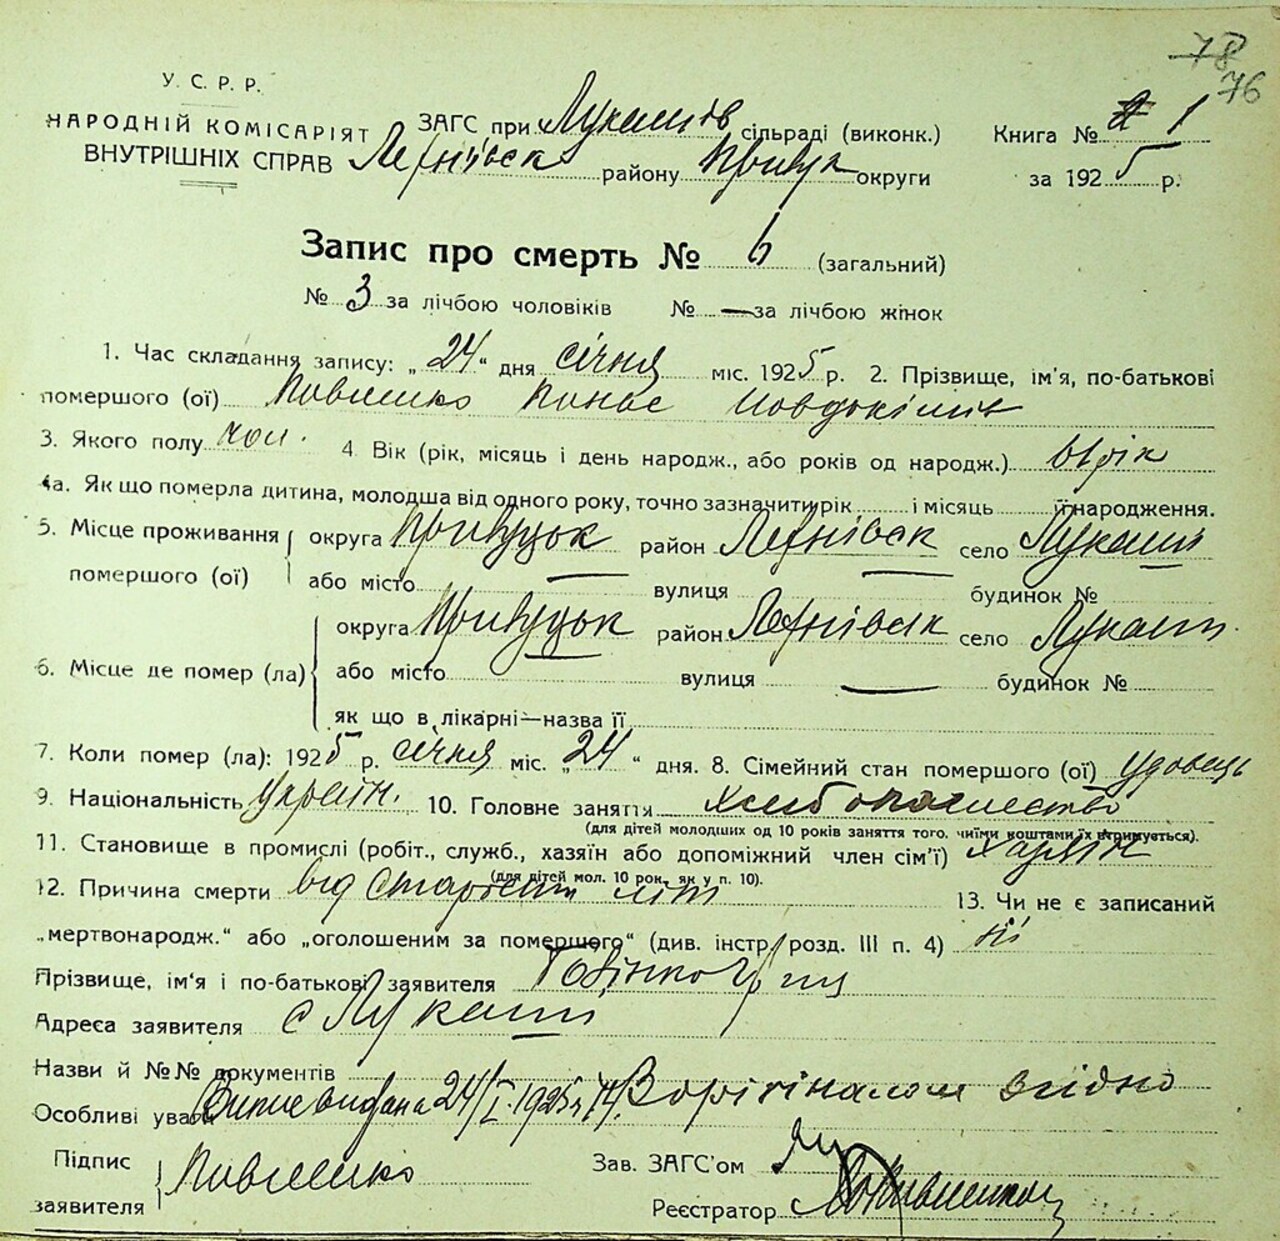 78
76
У. С. Р. Р.
НАРОДНІЙ КОМІСАРІЯТ
ВНУТРІШНІХ СПРАВ
ЗАГС при Лукашів сільраді (виконк.)
району округи
Книга № 1
за 1925 р.
Запис про смерть № 6 (загальний)
№ 3 за лічбою чоловіків № — за лічбою жінок
1. Час складання запису: „24“ дня січня міс. 1925 р. 2. Прізвище, ім'я, по-батькові
помершого (ої) Павленко Панас
3. Якого полу чол. 4 Вік (рік, місяць і день народж., або років од народж.) рік
4а. Як що померла дитина, молодша від одного року, точно зазначити рік і місяць її народження.
5. Місце проживання помершого (ої) округа Прилуцьк район село Лукаші
або місто вулиця — будинок №
6. Місце де помер (ла) округа Прилуцьк район село Лукаші
або місто вулиця — будинок №
як що в лікарні—назва її
7. Коли помер (ла): 1925 р. січня міс. „24“ дня. 8. Сімейний стан помершого (ої) удовець
9. Національність Україн. 10. Головне заняття хлібопашество
(для дітей молодших од 10 років заняття того, чиїми коштами їх втримується).
11. Становище в промислі (робіт., служб., хазяїн або допоміжний член сім'ї) хазяїн
(для дітей мол. 10 рок. як у п. 10).
12. Причина смерти від старости літ 13. Чи не є записаний
„мертвонародж.“ або „оголошеним за помершого“ (див. інстр. розд. III п. 4) ні
Прізвище, ім'я і по-батькові заявителя
Адреса заявителя с Лукаші
Назви й №№ документів
Особливі уваги видана 24/I 1925 р З орігіналом згідно
Підпис заявителя Павленко
Зав. ЗАГС'ом
Реєстратор